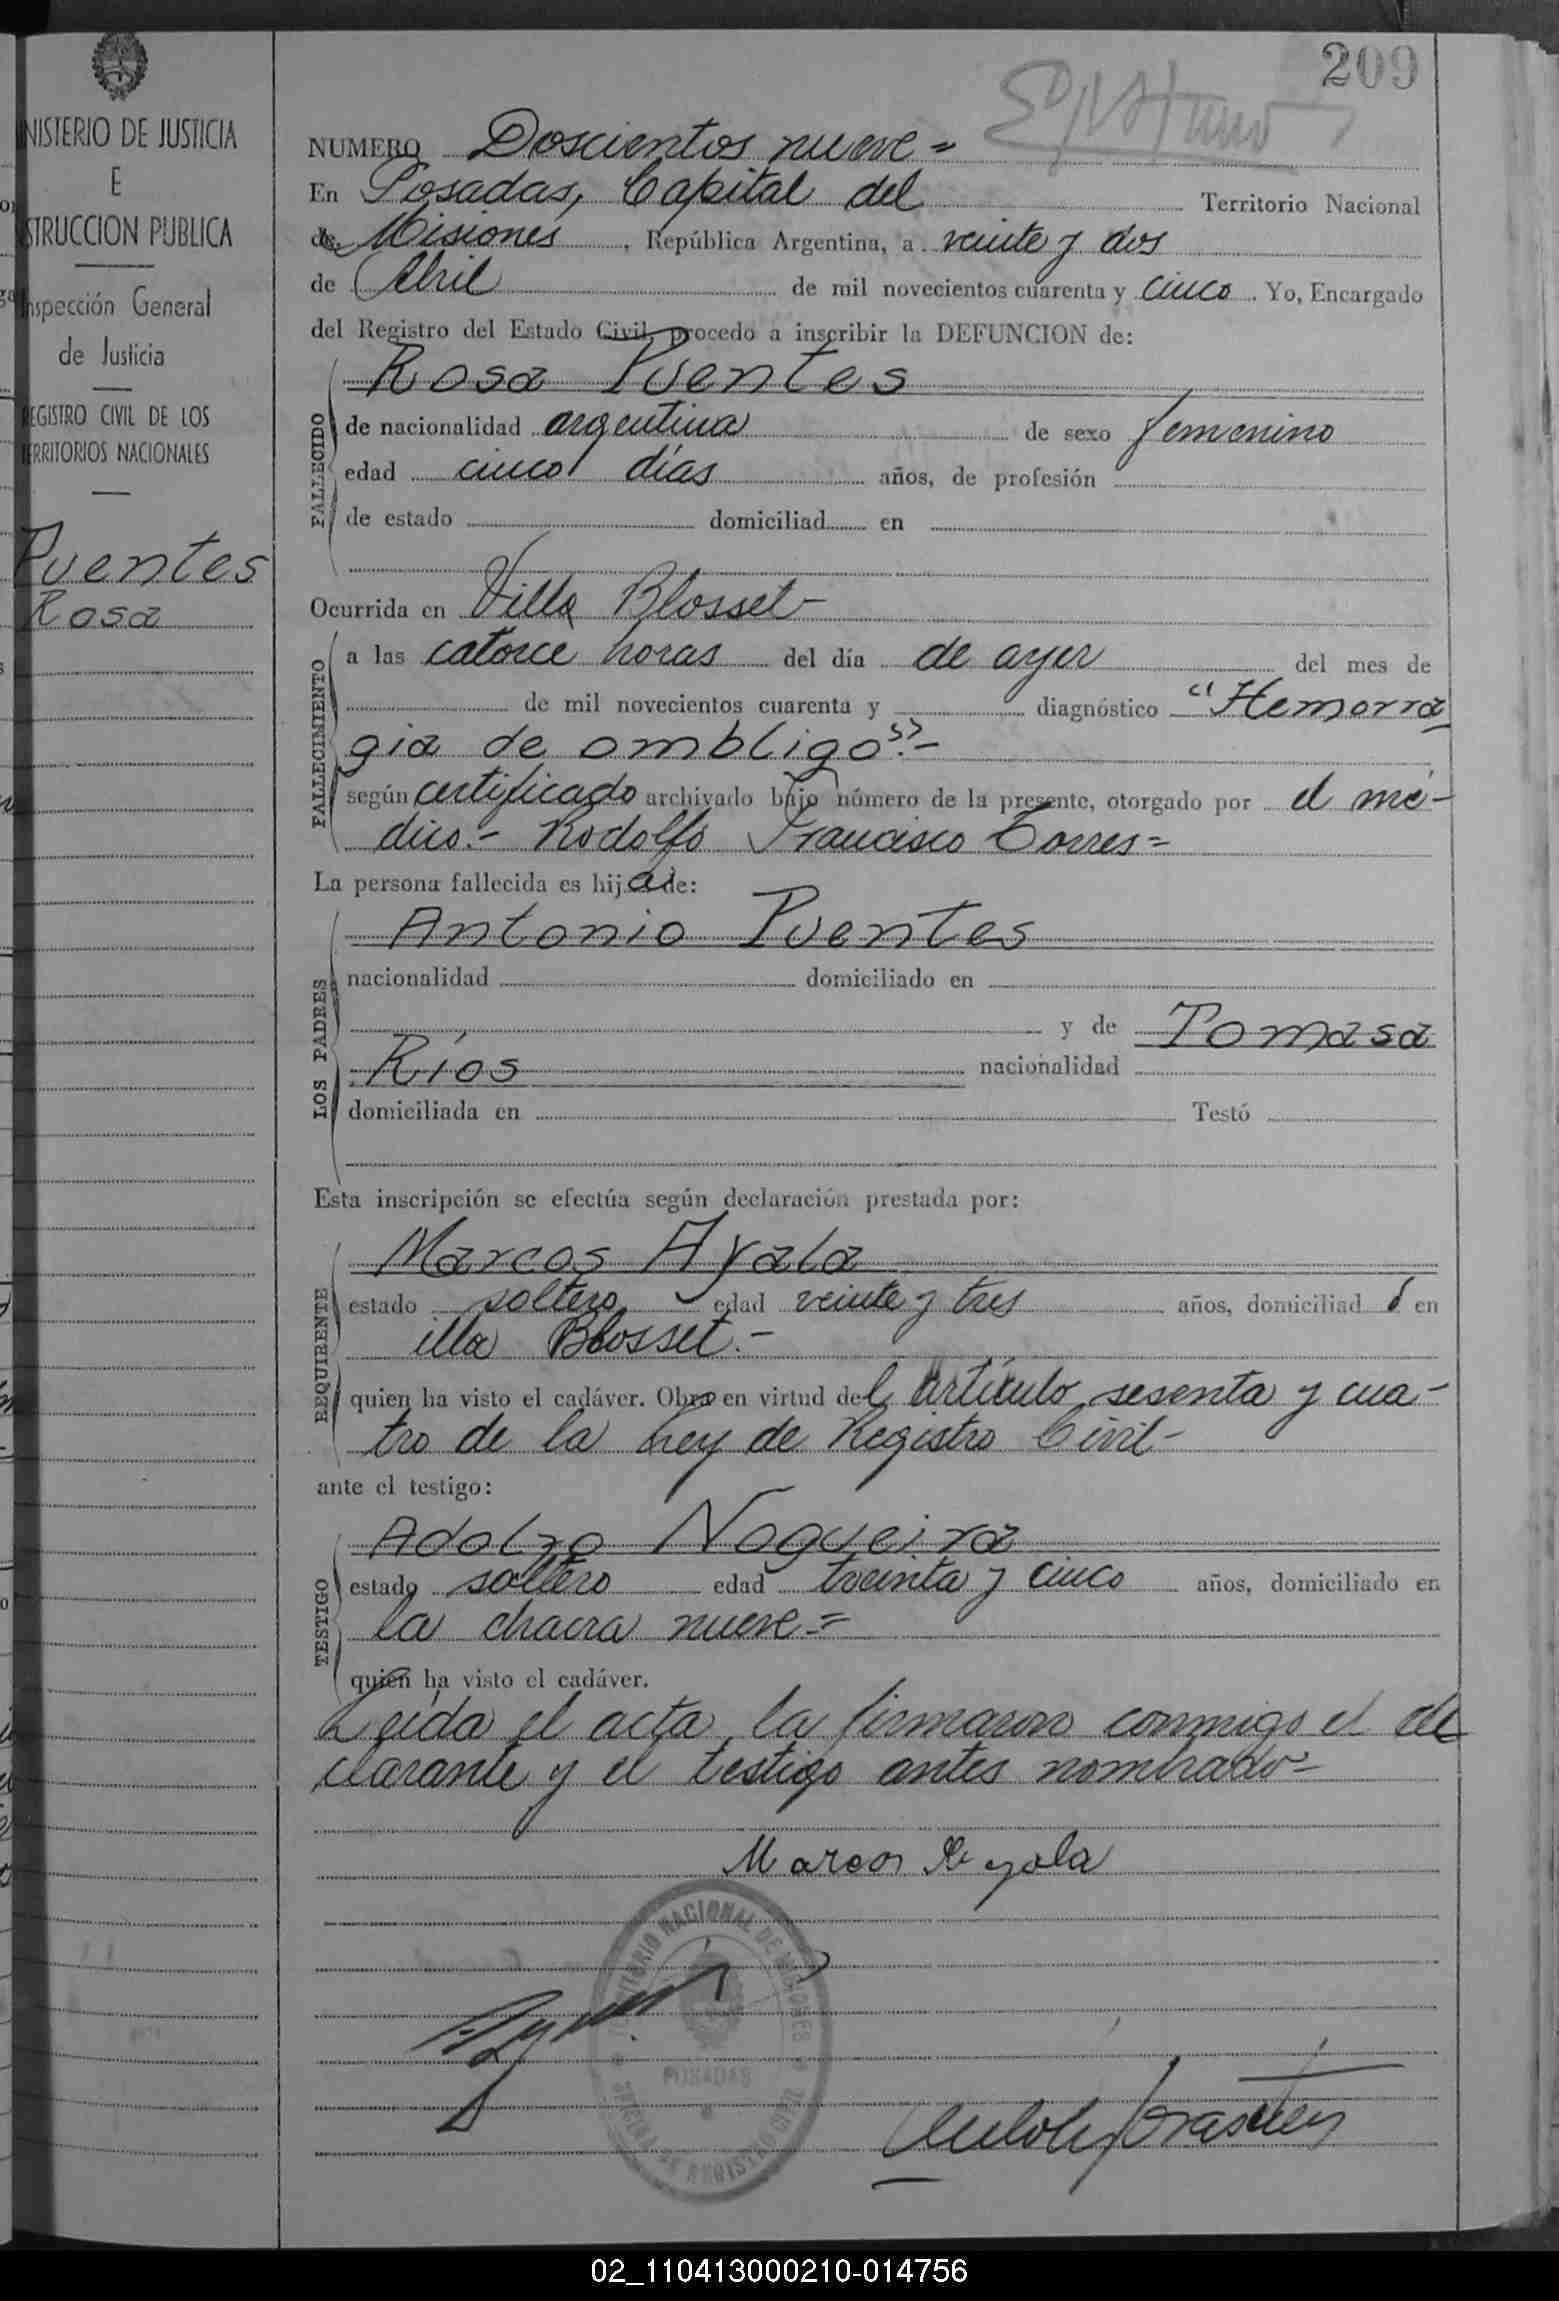 209
NISTERIO DE JUSTICIA
E
STRUCCION PUBLICA
nspección General
de Justicia
EGISTRO CIVIL DE LOS
ERRITORIOS NACIONALES
Puentes
Rosa
NUMERO Doscientos nueve =
En Posadas, Capital del Territorio Nacional
de Misiones, República Argentina, a veinte y dos
de Abril de mil novecientos cuarenta y cinco. Yo, Encargado
del Registro del Estado Civil, procedo a inscribir la DEFUNCION de:
FALLECIDO
Rosa Puentes
de nacionalidad argentina de sexo femenino
edad cinco días años, de profesión
de estado domiciliad en
Ocurrida en Villa Blosset-
FALLECIMIENTO
a las catorce horas del día de ayer del mes de
de mil novecientos cuarenta y diagnóstico "Hemorra
gia de ombligo".-
según certificado archivado bajo número de la presente, otorgado por el mé-
dico.- Rodolfo Francisco Torres=
La persona fallecida es hija de:
LOS PADRES
Antonio Puentes
nacionalidad domiciliado en
y de Tomasa
Ríos nacionalidad
domiciliada en Testó
Esta inscripción se efectúa según declaración prestada por:
REQUIRENTE
Marcos Ayala
estado soltero edad veinte y tres años, domiciliad o en
illa Blosset.-
quien ha visto el cadáver. Obro en virtud del artículo sesenta y cua-
tro de la Ley de Registro Civil-
ante el testigo:
TESTIGO
Adolfo Nogueira
estado soltero edad treinta y cinco años, domiciliado en
la chacra nueve=
quien ha visto el cadáver.
Leída el acta, la firmaron conmigo el de
clarante y el testigo antes nombrado-
Marcos Ayala
TERRITORIO NACIONAL DE MISIONES
POSADAS
OFICINA DE REGISTRO CIVIL
02_110413000210-014756